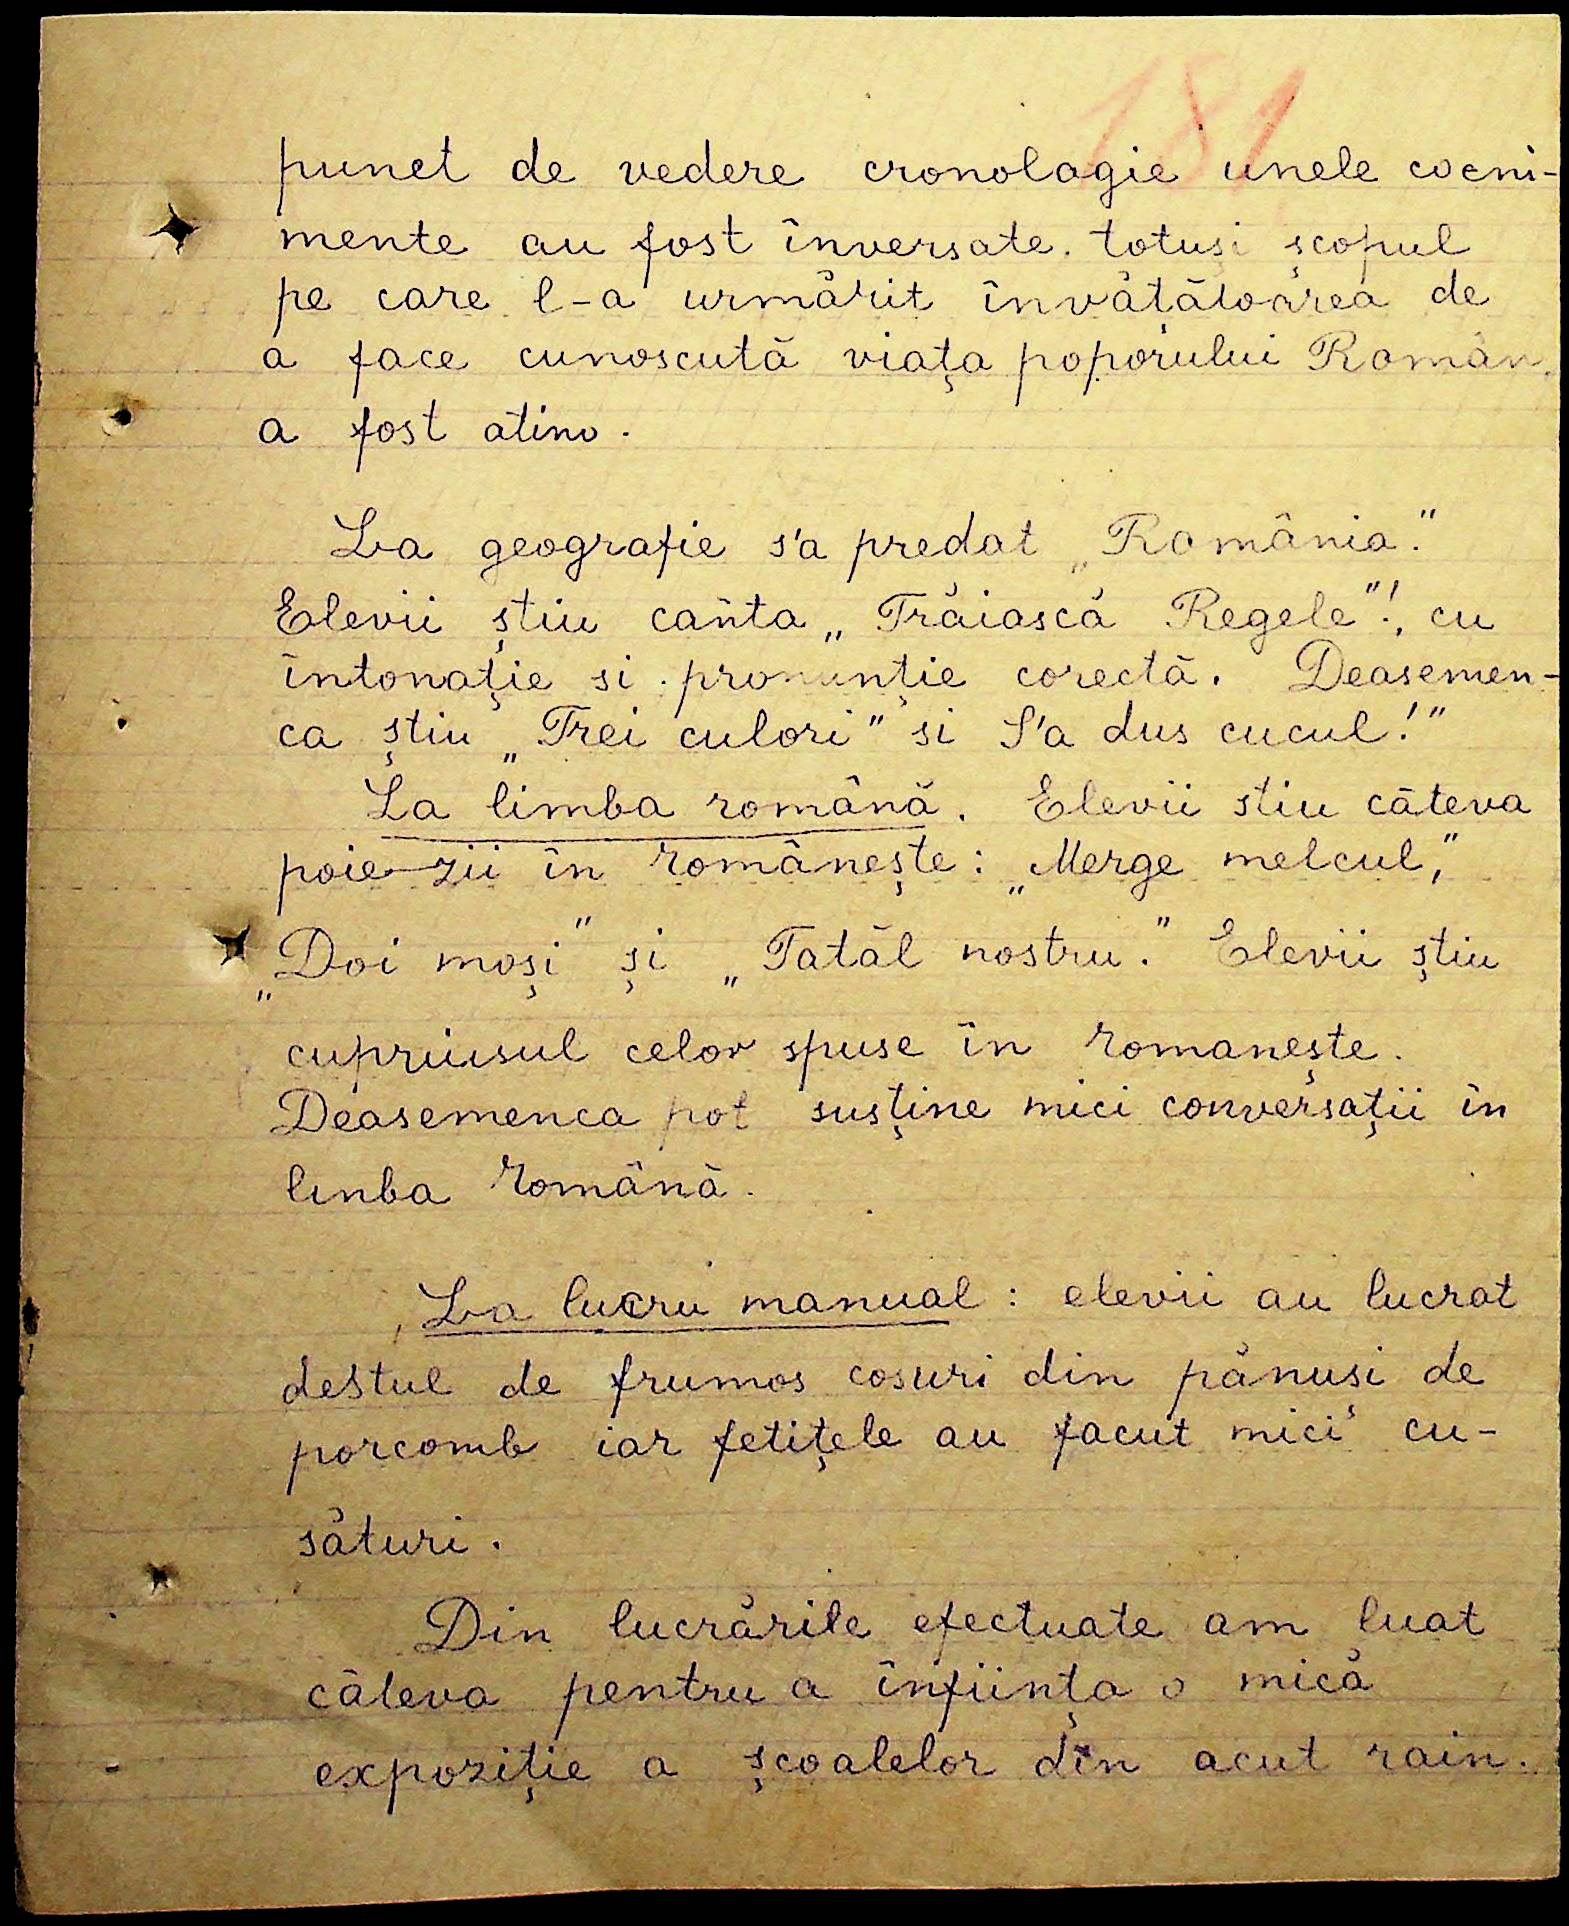 181
punct de vedere cronologie unele cocni-
mente au fost înversate. totuși școpul
pe care l-a urmărit învățătoarea de
a face cunoscută viața poporului Român,
a fost atins.
La geografie s'a predat „România."
Elevii știu cânta „Trăiască Regele"!, cu
întonație si pronunție corectă. Deasemen-
ea știu „Trei culori" si S'a dus cucul!"
La limba română. Elevii stiu câteva
poie-zii în românește: „Merge melcul,"
„Doi moși" și „Tatăl nostru." Elevii știu
cuprinsul celor spuse în romanește.
Deasemenea pot susține mici conversații în
linba română.
La lucru manual: elevii au lucrat
destul de frumos cosuri din pănuși de
porcomb iar fetițele au facut mici cu-
sături.
Din lucrările efectuate am luat
câteva pentru a înființa o mică
expoziție a școalelor din acut rain.